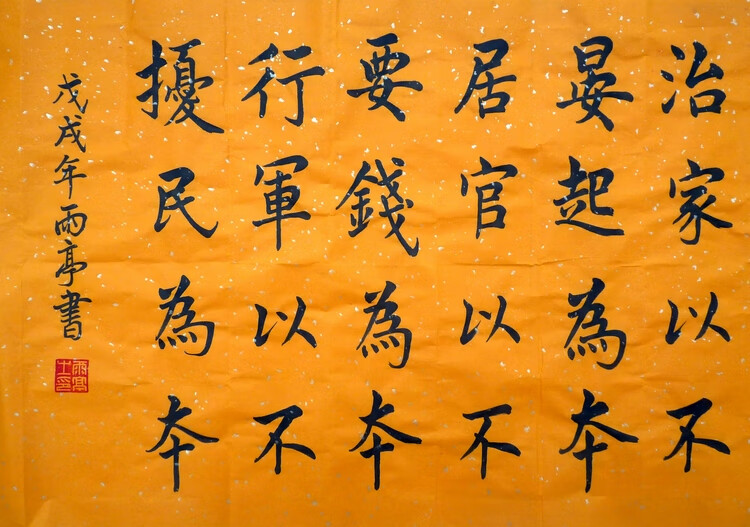 治家以不
晏起為本
居官以不
要錢為本
行軍以不
擾民為本
戊戌年雨亭書